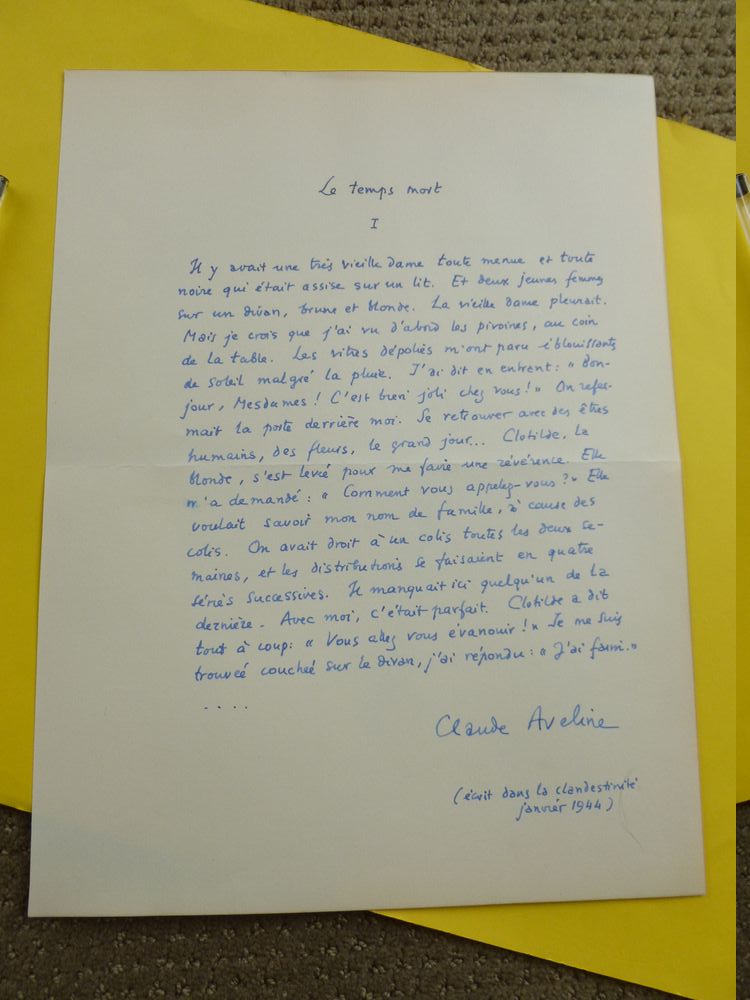 Le temps mort
I
Il y avait une très vieille dame toute menue et toute
noire qui était assise sur un lit. Et deux jeunes femmes
sur un divan, brune et blonde. La vieille dame pleurait.
Mais je crois que j'ai vu d'abord les pivoines, au coin
de la table. Les vitres dépolies m'ont paru éblouissantes
de soleil malgré la pluie. J'ai dit en entrant : « Bon-
jour, Mesdames ! C'est bien joli chez vous ! » On refer-
mait la porte derrière moi. Se retrouver avec des êtres
humains, des fleurs, le grand jour... Clotilde, la
blonde, s'est levée pour me faire une révérence. Elle
m'a demandé : « Comment vous appelez-vous ? » Elle
voulait savoir mon nom de famille, à cause des
colis. On avait droit à un colis toutes les deux se-
maines, et les distributions se faisaient en quatre
séries successives. Il manquait ici quelqu'un de la
dernière. Avec moi, c'était parfait. Clotilde a dit
tout à coup : « Vous allez vous évanouir ! » Je me suis
trouvée couchée sur le divan, j'ai répondu : « J'ai faim. »
. . . .
Claude Aveline
(écrit dans la clandestinité
janvier 1944)